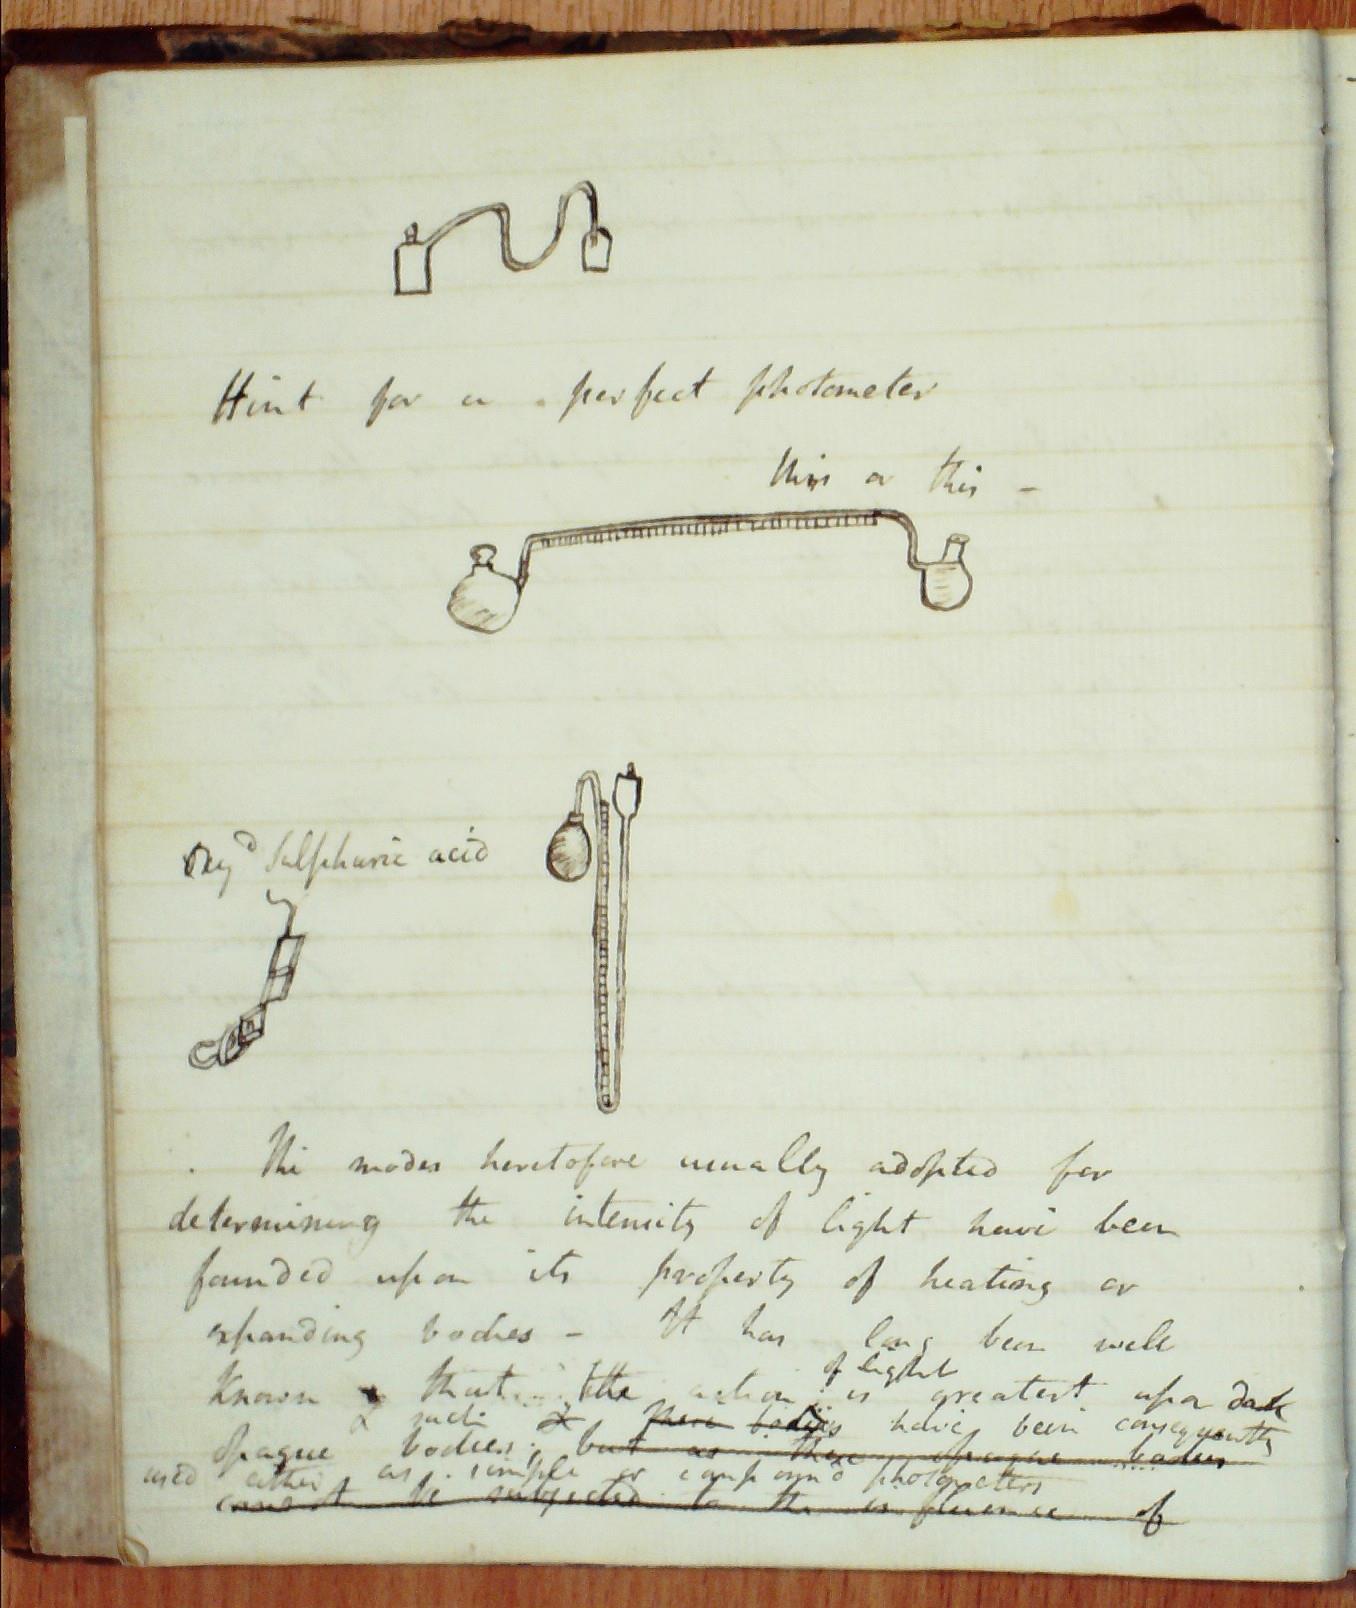 Hint for a perfect photometer
this or this -
Oxyd Sulphuric acid
The modes heretofore usually adopted for
determining the intensity of light have been
founded upon its property of heating or
expanding bodies - It has long been well
known that the action of light is greatest upon dark
& such these bodies have been consequently
opaque bodies; but as these opaque bodies
used either as simple or compound photometers
cannot be subjected to the influence of